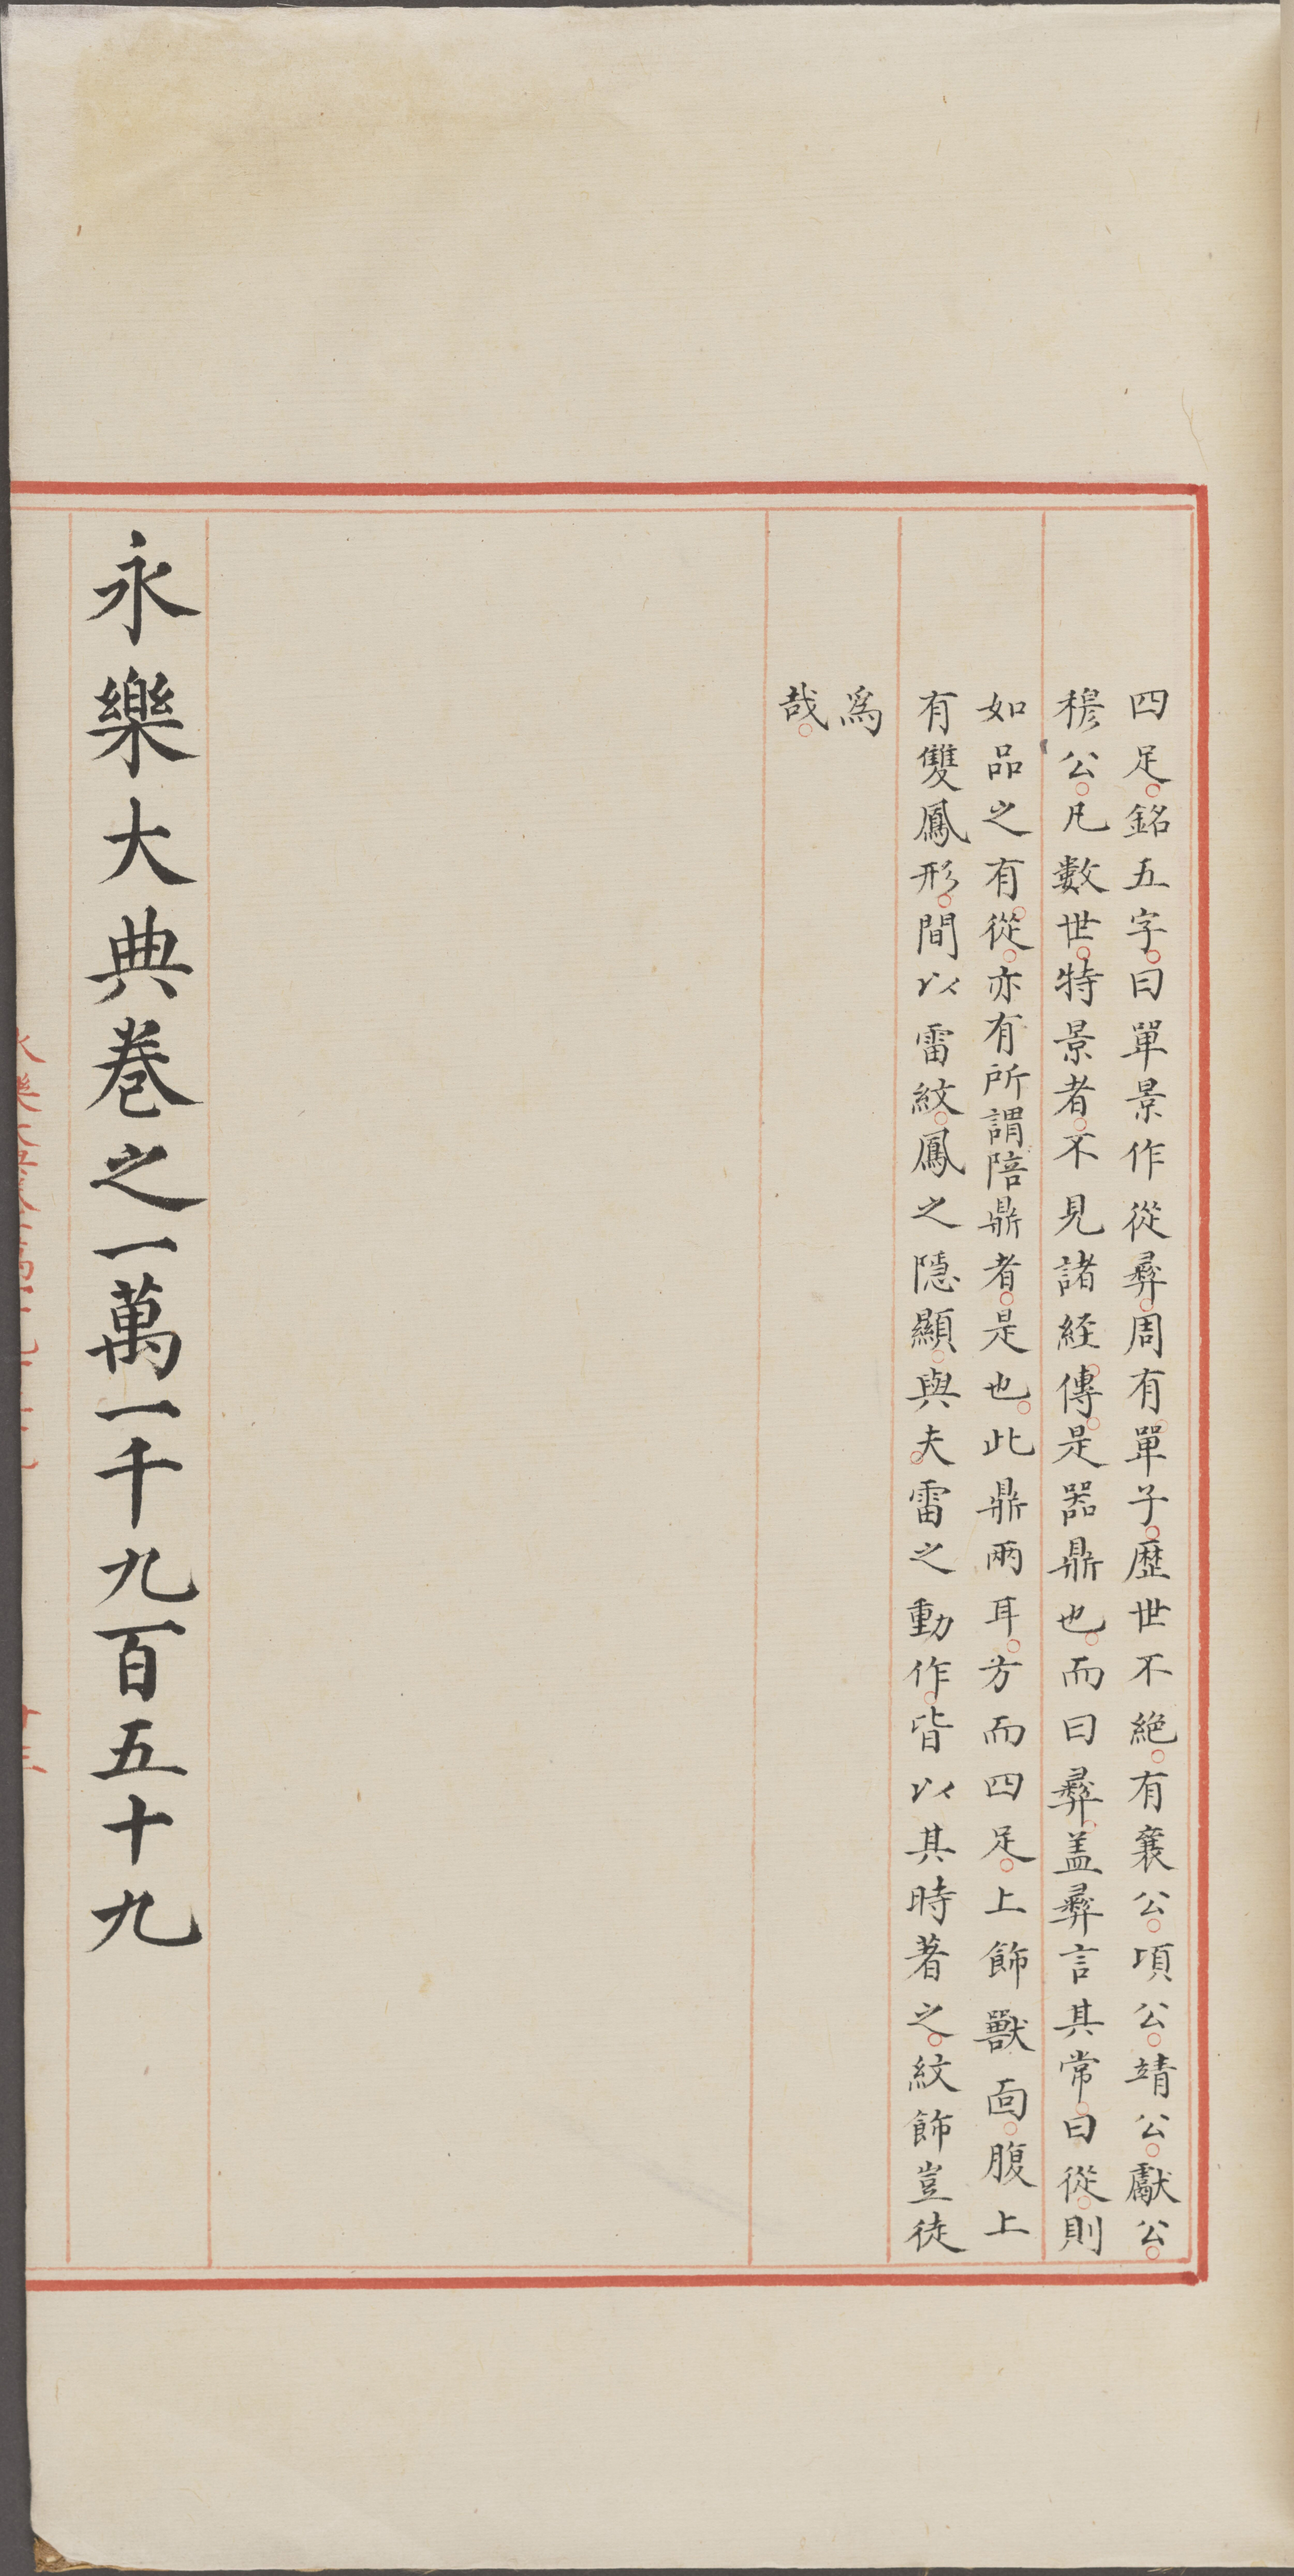 四足銘五字曰單景作從彞周有單子歷世不絕有襄公項公靖公獻公
穆公凡數世特景者不見諸經傳是器鼎也而曰彞盖彞言其常曰從則
如品之有從亦有所謂陪鼎者是也此鼎兩耳方而四足上飾獸面腹上
有雙鳳形間以雷紋鳳之隱顯與夫雷之動作皆以其時著之紋飾豈徒
爲
哉
永樂大典卷之一萬一千九百五十九